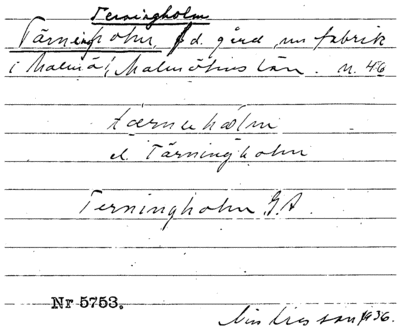 Terningholm
Tärningholm, f d. gård, nu fabrik
i Malmö, Malmöhus län. n. 46
tærneholm
el. Tärningholm
Terningholm G.A.
Nr 5753.
1936.